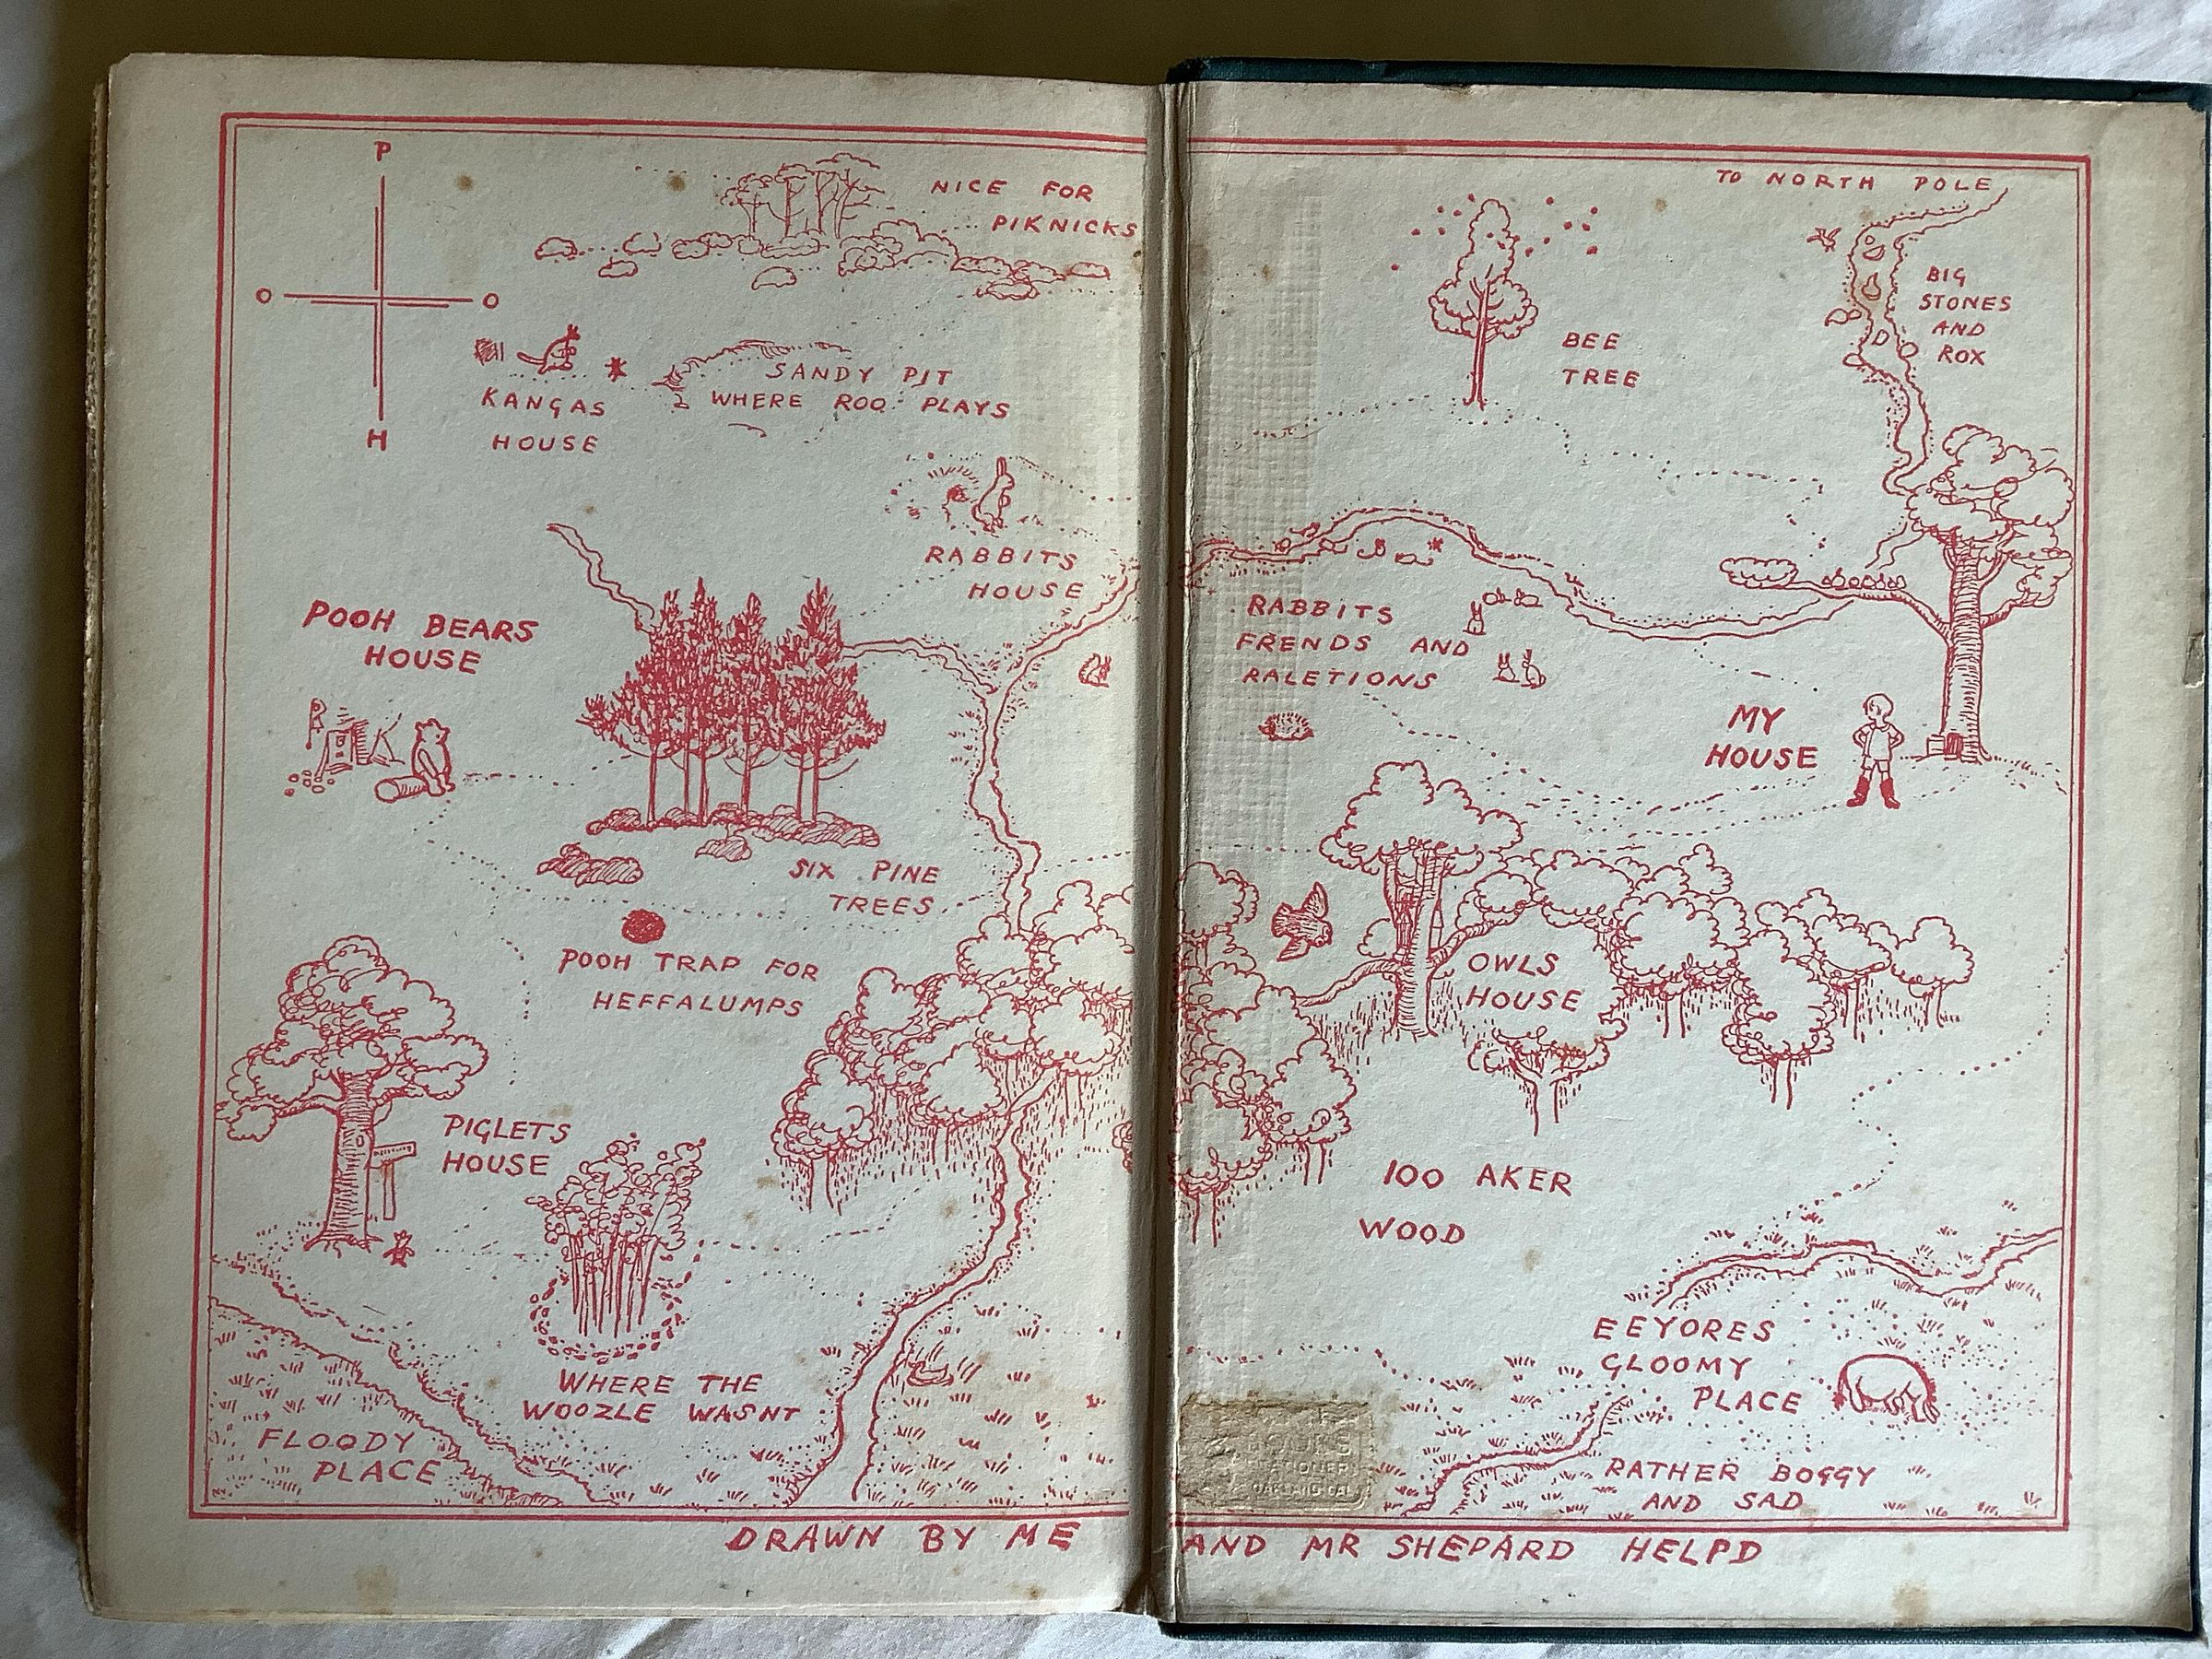 P
O O
H
NICE FOR
PIKNICKS
KANGAS
HOUSE
SANDY PIT
WHERE ROO PLAYS
RABBITS
HOUSE
POOH BEARS
HOUSE
SIX PINE
TREES
POOH TRAP FOR
HEFFALUMPS
PIGLETS
HOUSE
WHERE THE
WOOZLE WASNT
FLOODY
PLACE
TO NORTH POLE
BIG
STONES
AND
ROX
BEE
TREE
RABBITS
FRENDS AND
RALETIONS
MY
HOUSE
OWLS
HOUSE
100 AKER
WOOD
EEYORES
GLOOMY
PLACE
RATHER BOGGY
AND SAD
BOOKS
STATIONER
OAKLAND CAL
DRAWN BY ME AND MR SHEPARD HELPD